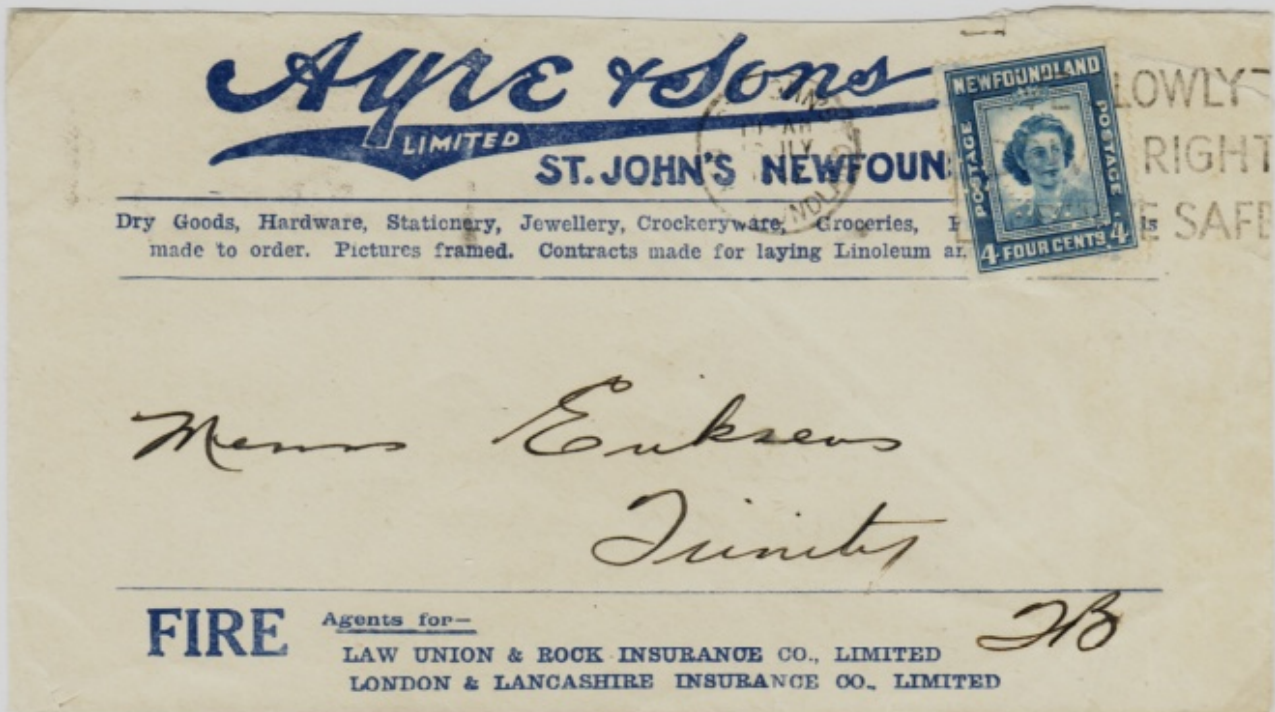 Ayre & Sons
LIMITED
ST. JOHN'S NEWFOUN
Dry Goods, Hardware, Stationery, Jewellery, Crockeryware, Groceries,
made to order. Pictures framed. Contracts made for laying Linoleum
NEWFOUNDLAND
POSTAGE
POSTAGE
4 FOUR CENTS 4
LOWLY
RIGHT
SAFE
11 AM
JLY
Messrs Eriksens
Trinity
TB
FIRE
Agents for—
LAW UNION & ROCK INSURANCE CO., LIMITED
LONDON & LANCASHIRE INSURANCE CO., LIMITED